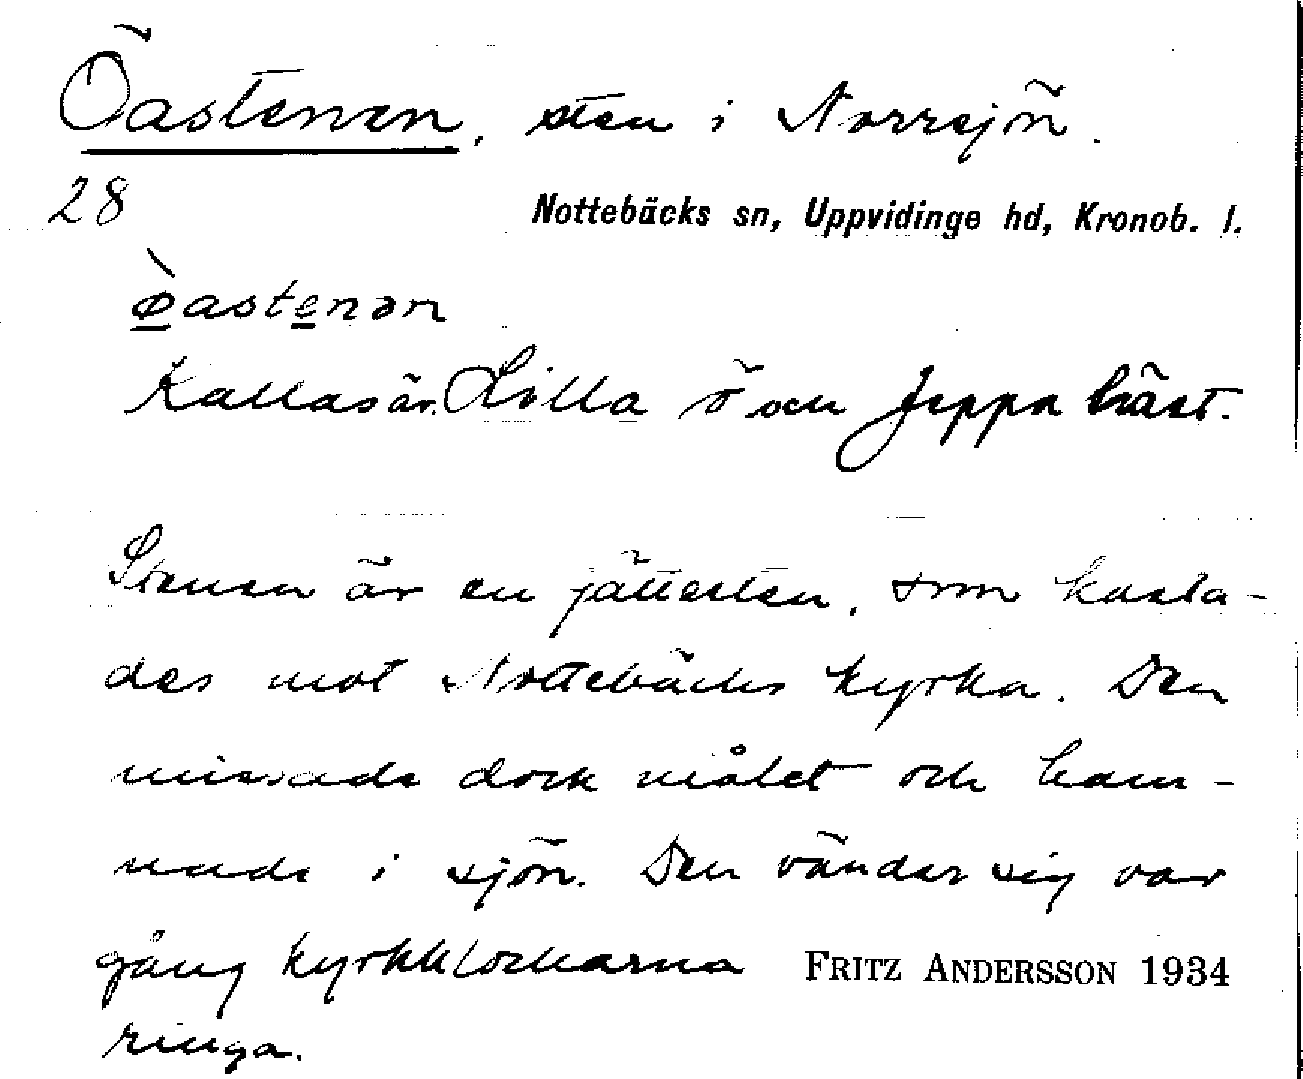 Öastenen, sten i Norrsjön.
28
Nottebäcks sn, Uppvidinge hd, Kronob. l.
ø̀astenən
Kallas äv. Lilla ö och Jeppa häst.
Stenen är en jättesten, som kasta-
des mot Nottebäcks kyrka. Den
missade dock målet och ham-
nade i sjön. Den vänder sig var
gång kyrkklockarna FRITZ ANDERSSON 1934
ringa.